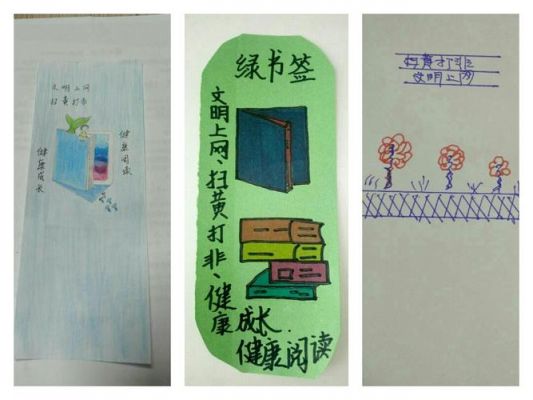 文明上网
扫黄打非
健康阅读
健康成长
绿书签
文明上网、扫黄打非、健康成长.
健康阅读
扫黄打非
文明上网